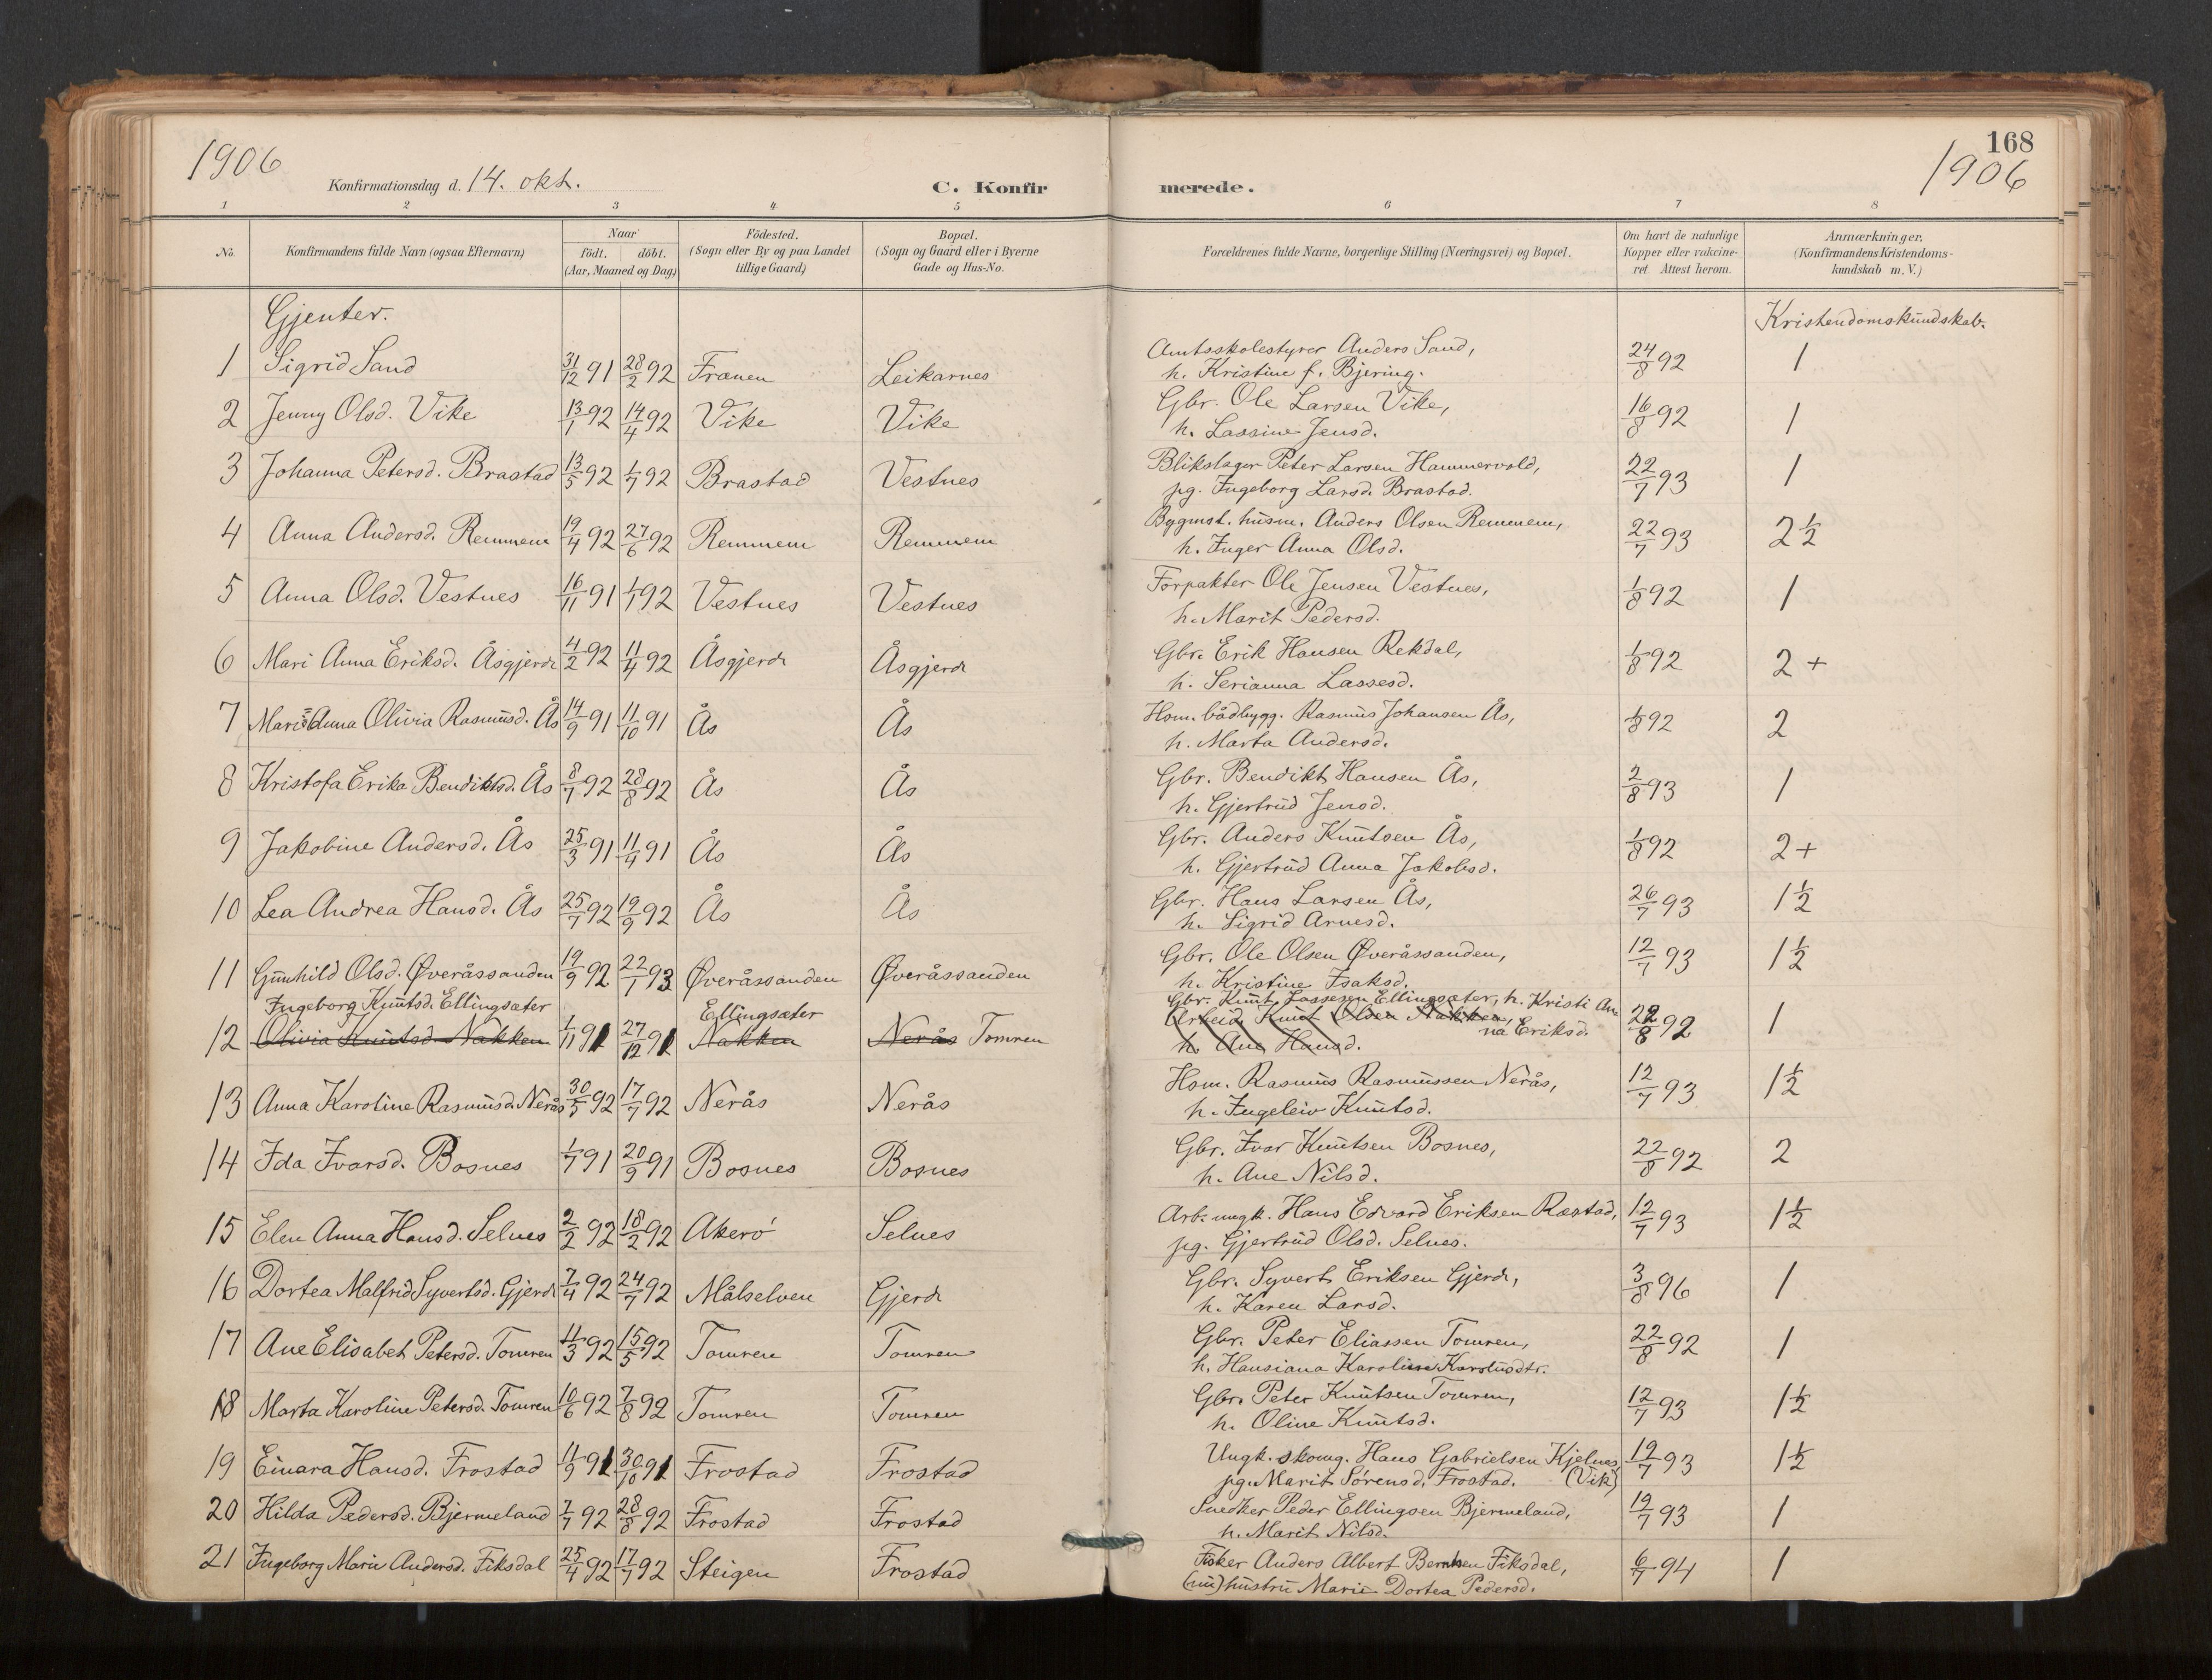 168
1906
1906
Konfirmationsdag d. 14. okt.
C. Konfirmerede.
1 2 3 4 5 6 7 8
No. Konfirmandens fulde Navn (ogsaa Efternavn) Naar födt. döbt. (Aar, Maaned og Dag) Födested. (Sogn eller By og paa Landet tillige Gaard) Bopæl. (Sogn og Gaard eller i Byerne Gade og Hus-No. Forældrenes fulde Navne, borgerlige Stilling (Næringsvei) og Bopæl. Om havt de naturlige Kopper eller vakcineret. Attest herom. Anmærkninger. (Konfirmandens Kristendomskundskab m. V.)
Gjenter. Kristendomskundskab.
1 Sigrid Sand 31/12 91 28/2 92 Frænen Leikarnes Amtsskolestyrer Anders Sand, 24/8 92 1
h. Kristine f. Bjering.
2 Jenny Olsd. Vike 13/1 92 14/4 92 Vike Vike Gbr. Ole Larsen Vike, 16/8 92 1
h. Lassine Jensd.
3 Johanna Petersd. Brastad 13/5 92 1/7 92 Brastad Vestnes Blikslager Peter Larsen Hammervold, 22/7 93 1
pg. Ingeborg Larsd. Brastad.
4 Anna Andersd. Remmem 19/4 92 27/6 92 Remmem Remmem Bygmst. husm. Anders Olsen Remmem, 22/7 93 2 1/2
h. Inger Anna Olsd.
5 Anna Olsd. Vestnes 16/11 91 1/1 92 Vestnes Vestnes Forpakter Ole Jensen Vestnes, 1/8 92 1
h. Marit Pedersd.
6 Mari Anna Eriksd. Åsgjerde 4/2 92 11/4 92 Åsgjerde Åsgjerde Gbr. Erik Hansen Rekdal, 1/8 92 2 +
h. Serianna Lassesd.
7 Mari Anna Olivia Rasmusd. Ås 14/9 91 11/10 91 Ås Ås Hsm. bådbygg. Rasmus Johansen Ås, 1/8 92 2
h. Marta Andersd.
8 Kristofa Erika Bendiktsd. Ås 8/7 92 28/8 92 Ås Ås Gbr. Bendikt Hansen Ås, 2/8 93 1
h. Gjertrud Jensd.
9 Jakobine Andersd. Ås 25/3 91 11/4 91 Ås Ås Gbr. Anders Knutsen Ås, 1/8 92 2 +
h. Gjertrud Anna Jakobsd.
10 Lea Andrea Hansd. Ås 25/7 92 19/9 92 Ås Ås Gbr. Hans Larsen Ås, 26/7 93 1 1/2
h. Sigrid Arnesd.
11 Gunhild Olsd. Øveråssanden 19/9 92 22/1 93 Øveråssanden Øveråssanden Gbr. Ole Olsen Øveråssanden, 12/7 93 1 1/2
h. Kristine Isaksd.
Ingeborg Knutsd. Ellingsæter Ellingsæter Gbr. Knut Lassesen Ellingsæter, h. Kristi An
12 Olivia Knutsd. Nakken 1/11 91 27/12 91 Nakken Nerås Tomren Arbeid. Knut Olsen Nakken, na Eriksd. 22/8 92 1
h. Ane Hansd.
13 Anna Karoline Rasmusd. Nerås 30/5 92 17/7 92 Nerås Nerås Hsm. Rasmus Rasmussen Nerås, 12/7 93 1 1/2
h. Ingeleiv Knutsd.
14 Ida Ivarsd. Bosnes 1/7 91 20/9 91 Bosnes Bosnes Gbr. Ivar Knutsen Bosnes, 22/8 92 2
h. Ane Nilsd.
15 Elen Anna Hansd. Selnes 2/2 92 18/2 92 Akerö Selnes Arb. ungk. Hans Edvard Eriksen Røstad, 12/7 93 1 1/2
pg. Gjertrud Olsd. Selnes.
16 Dortea Malfrid Syvertsd. Gjerde 7/4 92 24/7 92 Målselven Gjerde Gbr. Syvert Eriksen Gjerde, 3/8 96 1
h. Karen Larsd.
17 Ane Elisabet Petersd. Tomren 11/3 92 15/5 92 Tomren Tomren Gbr. Peter Eliassen Tomren, 22/8 92 1
h. Hansiana Karoline Karolusdtr.
18 Marta Karoline Petersd. Tomren 10/6 92 7/8 92 Tomren Tomren Gbr. Peter Knutsen Tomren, 12/7 93 1 1/2
h. Oline Knutsd.
19 Einara Hansd. Frostad 11/9 91 30/10 91 Frostad Frostad Ungk. skomg. Hans Gabrielsen Kjelnes 12/7 93 1 1/2
pg. Marit Sörensd. Frostad. (Vik)
20 Hilda Pedersd. Bjermeland 7/7 92 28/8 92 Frostad Frostad Snedker Peder Ellingsen Bjermeland, 12/7 93 1
h. Marit Nilsd.
21 Ingeborg Marie Andersd. Fiksdal 25/4 92 17/7 92 Steigen Frostad Fisker Anders Albert Berntsen Fiksdal, 6/7 94 1
(nu) hustru Marie Dortea Pedersd.